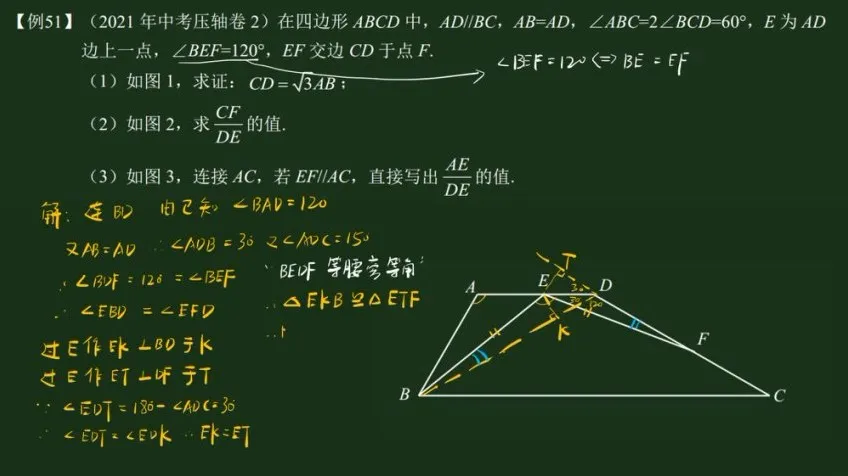 【例51】（2021 年中考压轴卷 2）在四边形 ABCD 中，AD//BC，AB=AD，∠ABC=2∠BCD=60°，E 为 AD
边上一点，∠BEF=120°，EF 交边 CD 于点 F.
∠BEF=120<=>BE=EF
（1）如图 1，求证：CD=√3AB；
（2）如图 2，求 CF/DE 的值.
（3）如图 3，连接 AC，若 EF//AC，直接写出 AE/DE 的值.
解：连 BD 由已知 ∠BAD=120
又AB=AD ∴∠ADB=30 又∠ADC=150
∴∠BDF=120=∠BEF
∴∠EBD=∠EFD
过 E 作 EK⊥BD 于 K
过 E 作 ET⊥DF 于 T
∵∠EDT=180-∠ADC=30
∴∠EDT=∠EDK ∴EK=ET
BEDF 等腰旁等角
∴△EKB≌△ETF
∴
T
A
E
D
30
30
120
K
F
B
C